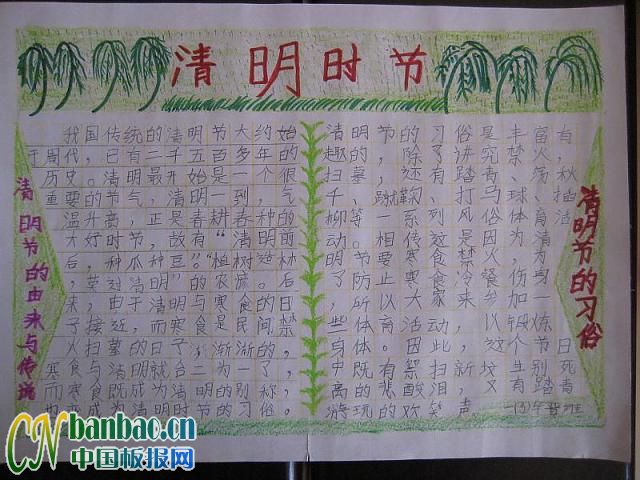 清明时节
清明节的由来与传说
我国传统的清明节大约始
于周代，已有二千五百多年的
历史。清明最开始是一个很
重要的节气，清明一到，气
温升高，正是春耕春种的
大好时节，故有“清明前
后，种瓜种豆。”“植树造林
，莫过清明”的农谚。后
来，由于清明与寒食的日
子接近，而寒食是民间禁
火扫墓的日子，渐渐的，
寒食与清明就合二为一了，
而寒食既成为清明的别称，
也变成为清明时节的习俗。
清明节的习俗是丰富有
趣的，除了讲究禁火、
扫墓，还有踏青、荡秋
千、蹴鞠、打马球、插
柳等一系列风俗体育活
动。相传这是因为清
明节要寒食禁火，为
了防止寒食冷餐伤身
，所以大家来参加一
些体育活动，以锻炼
身体。因此，这个节日
中既有祭扫新坟生别死
离的悲酸泪，又有踏青
游玩的欢笑声
清明节的习俗
CN banbao.cn
中国板报网